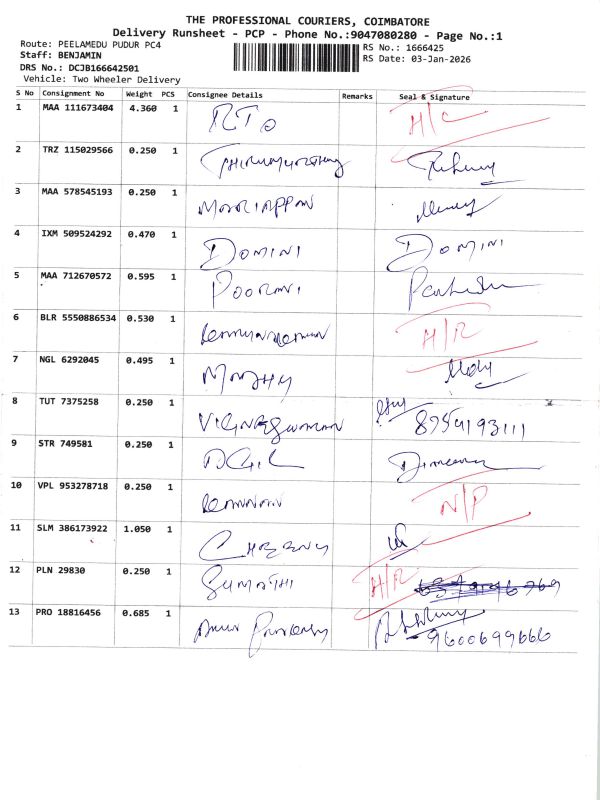 THE PROFESSIONAL COURIERS, COIMBATORE
Delivery Runsheet - PCP - Phone No.:9047080280 - Page No.:1
Route: PEELAMEDU PUDUR PC4
Staff: BENJAMIN
DRS No.: DCJB166642501
Vehicle: Two Wheeler Delivery
RS No.: 1666425
RS Date: 03-Jan-2026
S No Consignment No Weight PCS Consignee Details Remarks Seal & Signature
1 MAA 111673404 4.360 1 RTO
2 TRZ 115029566 0.250 1
3 MAA 578545193 0.250 1 MARRIAPPAN
4 IXM 509524292 0.470 1 DOMINI DOMINI
5 MAA 712670572 0.595 1 POORANI
6 BLR 5550886534 0.530 1 H/R
7 NGL 6292045 0.495 1
8 TUT 7375258 0.250 1 8754193111
9 STR 749581 0.250 1
10 VPL 953278718 0.250 1 N/P
11 SLM 386173922 1.050 1
12 PLN 29830 0.250 1 SUMATHI H/R
13 PRO 18816456 0.685 1 9600699666